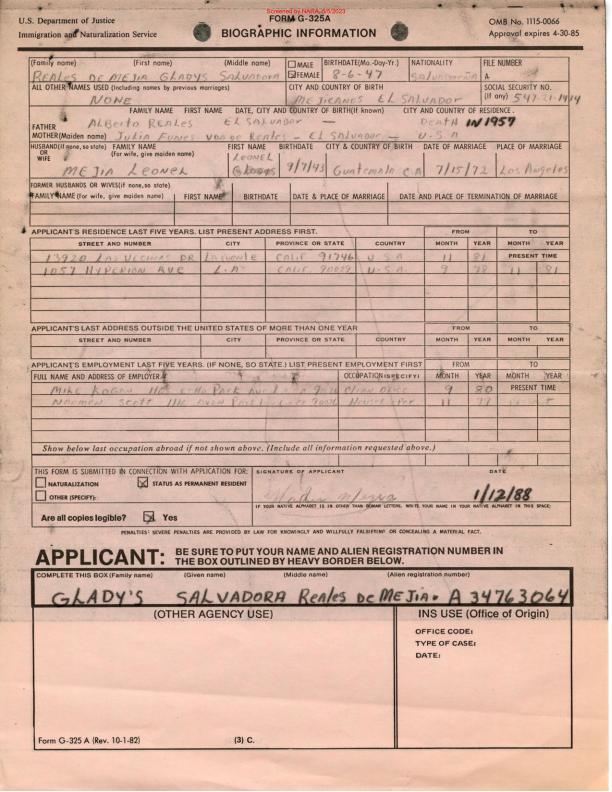 Screened by NARA, 5/5/2023
U.S. Department of Justice
Immigration and Naturalization Service
FORM G-325A
BIOGRAPHIC INFORMATION
OMB No. 1115-0066
Approval expires 4-30-85
(Family name) (First name) (Middle name) MALE FEMALE BIRTHDATE(Mo.-Day-Yr.) NATIONALITY FILE NUMBER
REALES DE MEJIA GLADYS Salvadora 8-6-47 Salvadoreña A-
ALL OTHER NAMES USED (Including names by previous marriages) CITY AND COUNTRY OF BIRTH SOCIAL SECURITY NO. (If any)
NONE MEJICANOS EL SALVADOR 547-21-1414
FAMILY NAME FIRST NAME DATE, CITY AND COUNTRY OF BIRTH(If known) CITY AND COUNTRY OF RESIDENCE.
FATHER Alberto REALES EL SALVADOR — DEATH IN 1957
MOTHER(Maiden name) Julia Funes de Reales - EL SALVADOR - U-S A
HUSBAND(If none, so state) OR WIFE FAMILY NAME (For wife, give maiden name) FIRST NAME BIRTHDATE CITY & COUNTRY OF BIRTH DATE OF MARRIAGE PLACE OF MARRIAGE
MEJIA LEONEL LEONEL 9/7/43 Guatemala C.A 7/15/72 Los Angeles
FORMER HUSBANDS OR WIVES(if none,so state)
FAMILY NAME (For wife, give maiden name) FIRST NAME BIRTHDATE DATE & PLACE OF MARRIAGE DATE AND PLACE OF TERMINATION OF MARRIAGE
APPLICANT'S RESIDENCE LAST FIVE YEARS. LIST PRESENT ADDRESS FIRST. FROM TO
STREET AND NUMBER CITY PROVINCE OR STATE COUNTRY MONTH YEAR MONTH YEAR
13920 Las Vecinas DR La Puente CALIF 91746 U-S A. 11 81 PRESENT TIME
1057 HYPERION AVE L.A CALIF. 90029 U-S A. 9 78 11 81
APPLICANT'S LAST ADDRESS OUTSIDE THE UNITED STATES OF MORE THAN ONE YEAR FROM TO
STREET AND NUMBER CITY PROVINCE OR STATE COUNTRY MONTH YEAR MONTH YEAR
APPLICANT'S EMPLOYMENT LAST FIVE YEARS. (IF NONE, SO STATE.) LIST PRESENT EMPLOYMENT FIRST FROM TO
FULL NAME AND ADDRESS OF EMPLOYER OCCUPATION(SPECIFY) MONTH YEAR MONTH YEAR
Mike Park 9 80 PRESENT TIME
Norman Scott House 11 78
Show below last occupation abroad if not shown above. (Include all information requested above.)
THIS FORM IS SUBMITTED IN CONNECTION WITH APPLICATION FOR: SIGNATURE OF APPLICANT DATE
NATURALIZATION STATUS AS PERMANENT RESIDENT
OTHER (SPECIFY): 1/12/88
IF YOUR NATIVE ALPHABET IS IN OTHER THAN ROMAN LETTERS, WRITE YOUR NAME IN YOUR NATIVE ALPHABET IN THIS SPACE:
Are all copies legible? Yes
PENALTIES: SEVERE PENALTIES ARE PROVIDED BY LAW FOR KNOWINGLY AND WILLFULLY FALSIFYING OR CONCEALING A MATERIAL FACT.
APPLICANT: BE SURE TO PUT YOUR NAME AND ALIEN REGISTRATION NUMBER IN THE BOX OUTLINED BY HEAVY BORDER BELOW.
COMPLETE THIS BOX (Family name) (Given name) (Middle name) (Alien registration number)
GLADY'S SALVADORA Reales De MEJIA. A 34763064
(OTHER AGENCY USE) INS USE (Office of Origin)
OFFICE CODE:
TYPE OF CASE:
DATE:
Form G-325 A (Rev. 10-1-82) (3) C.